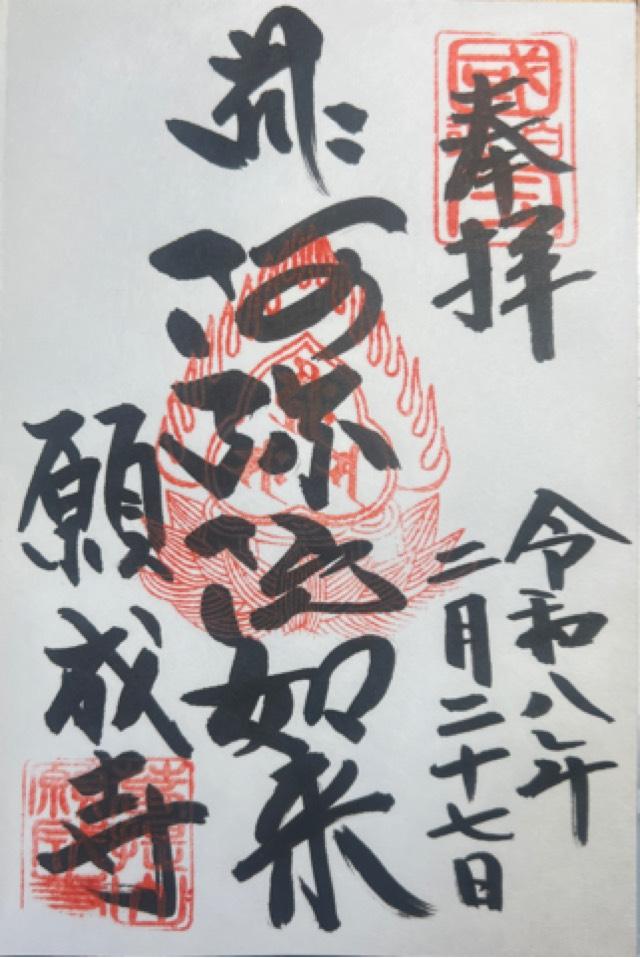 奉拝
令和八年
二月二十七日
阿弥陀如来
願成寺